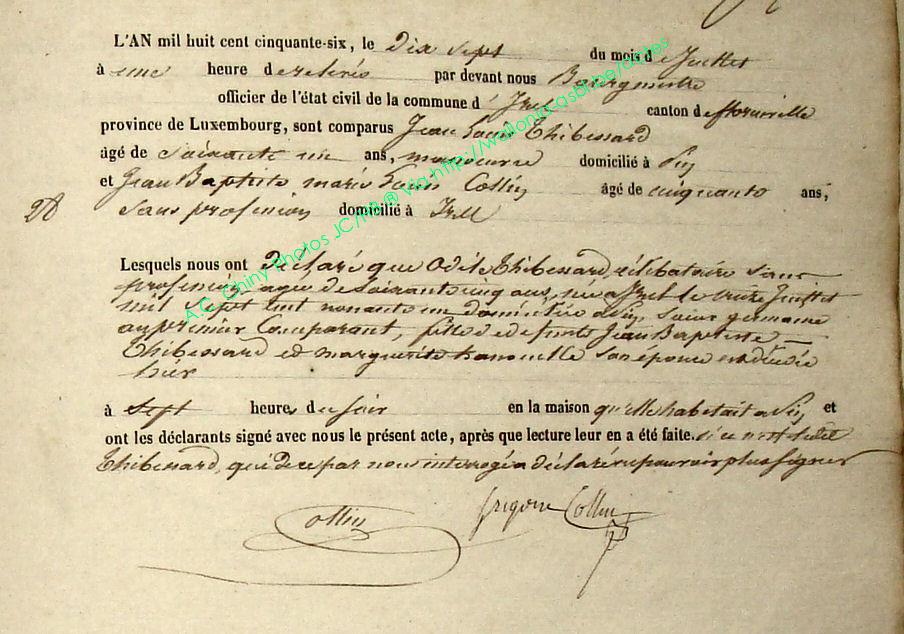 L'AN mil huit cent cinquante-six, le dix sept du mois d e Juillet
à une heure d e relevée par devant nous Bourgmestre
officier de l'état civil de la commune d' Izel canton de florenville
province de Luxembourg, sont comparus Jean Louis Thibessard
âgé de soixante un ans, manoeuvre domicilié à Pin
et Jean Baptiste marie Louis Collin âgé de cinquante ans,
28
sans profession domicilié à Izel
Lesquels nous ont déclaré que Odile Thibessard, célibataire sans
profession agée de soixante cinq ans, née a Izel le treize Juillet
mil sept cent nonante un domiciliée a Pin, soeur germaine
au premier Comparant, fille de defunts Jean Baptiste
Thibessard et marguerite son épouse est décédée
hier
à sept heures d u soir en la maison qu'elle habitait a Pin et
ont les déclarants signé avec nous le présent acte, après que lecture leur en a été faite. si ce n'est ledit
Thibessard, qui de ce par nous interrogé a déclaré ne pouvoir plus signer
Collin Grégoire Collin
A.C. Chiny Photos JC/MB ® Via http://wallonica.casbl.be/dates